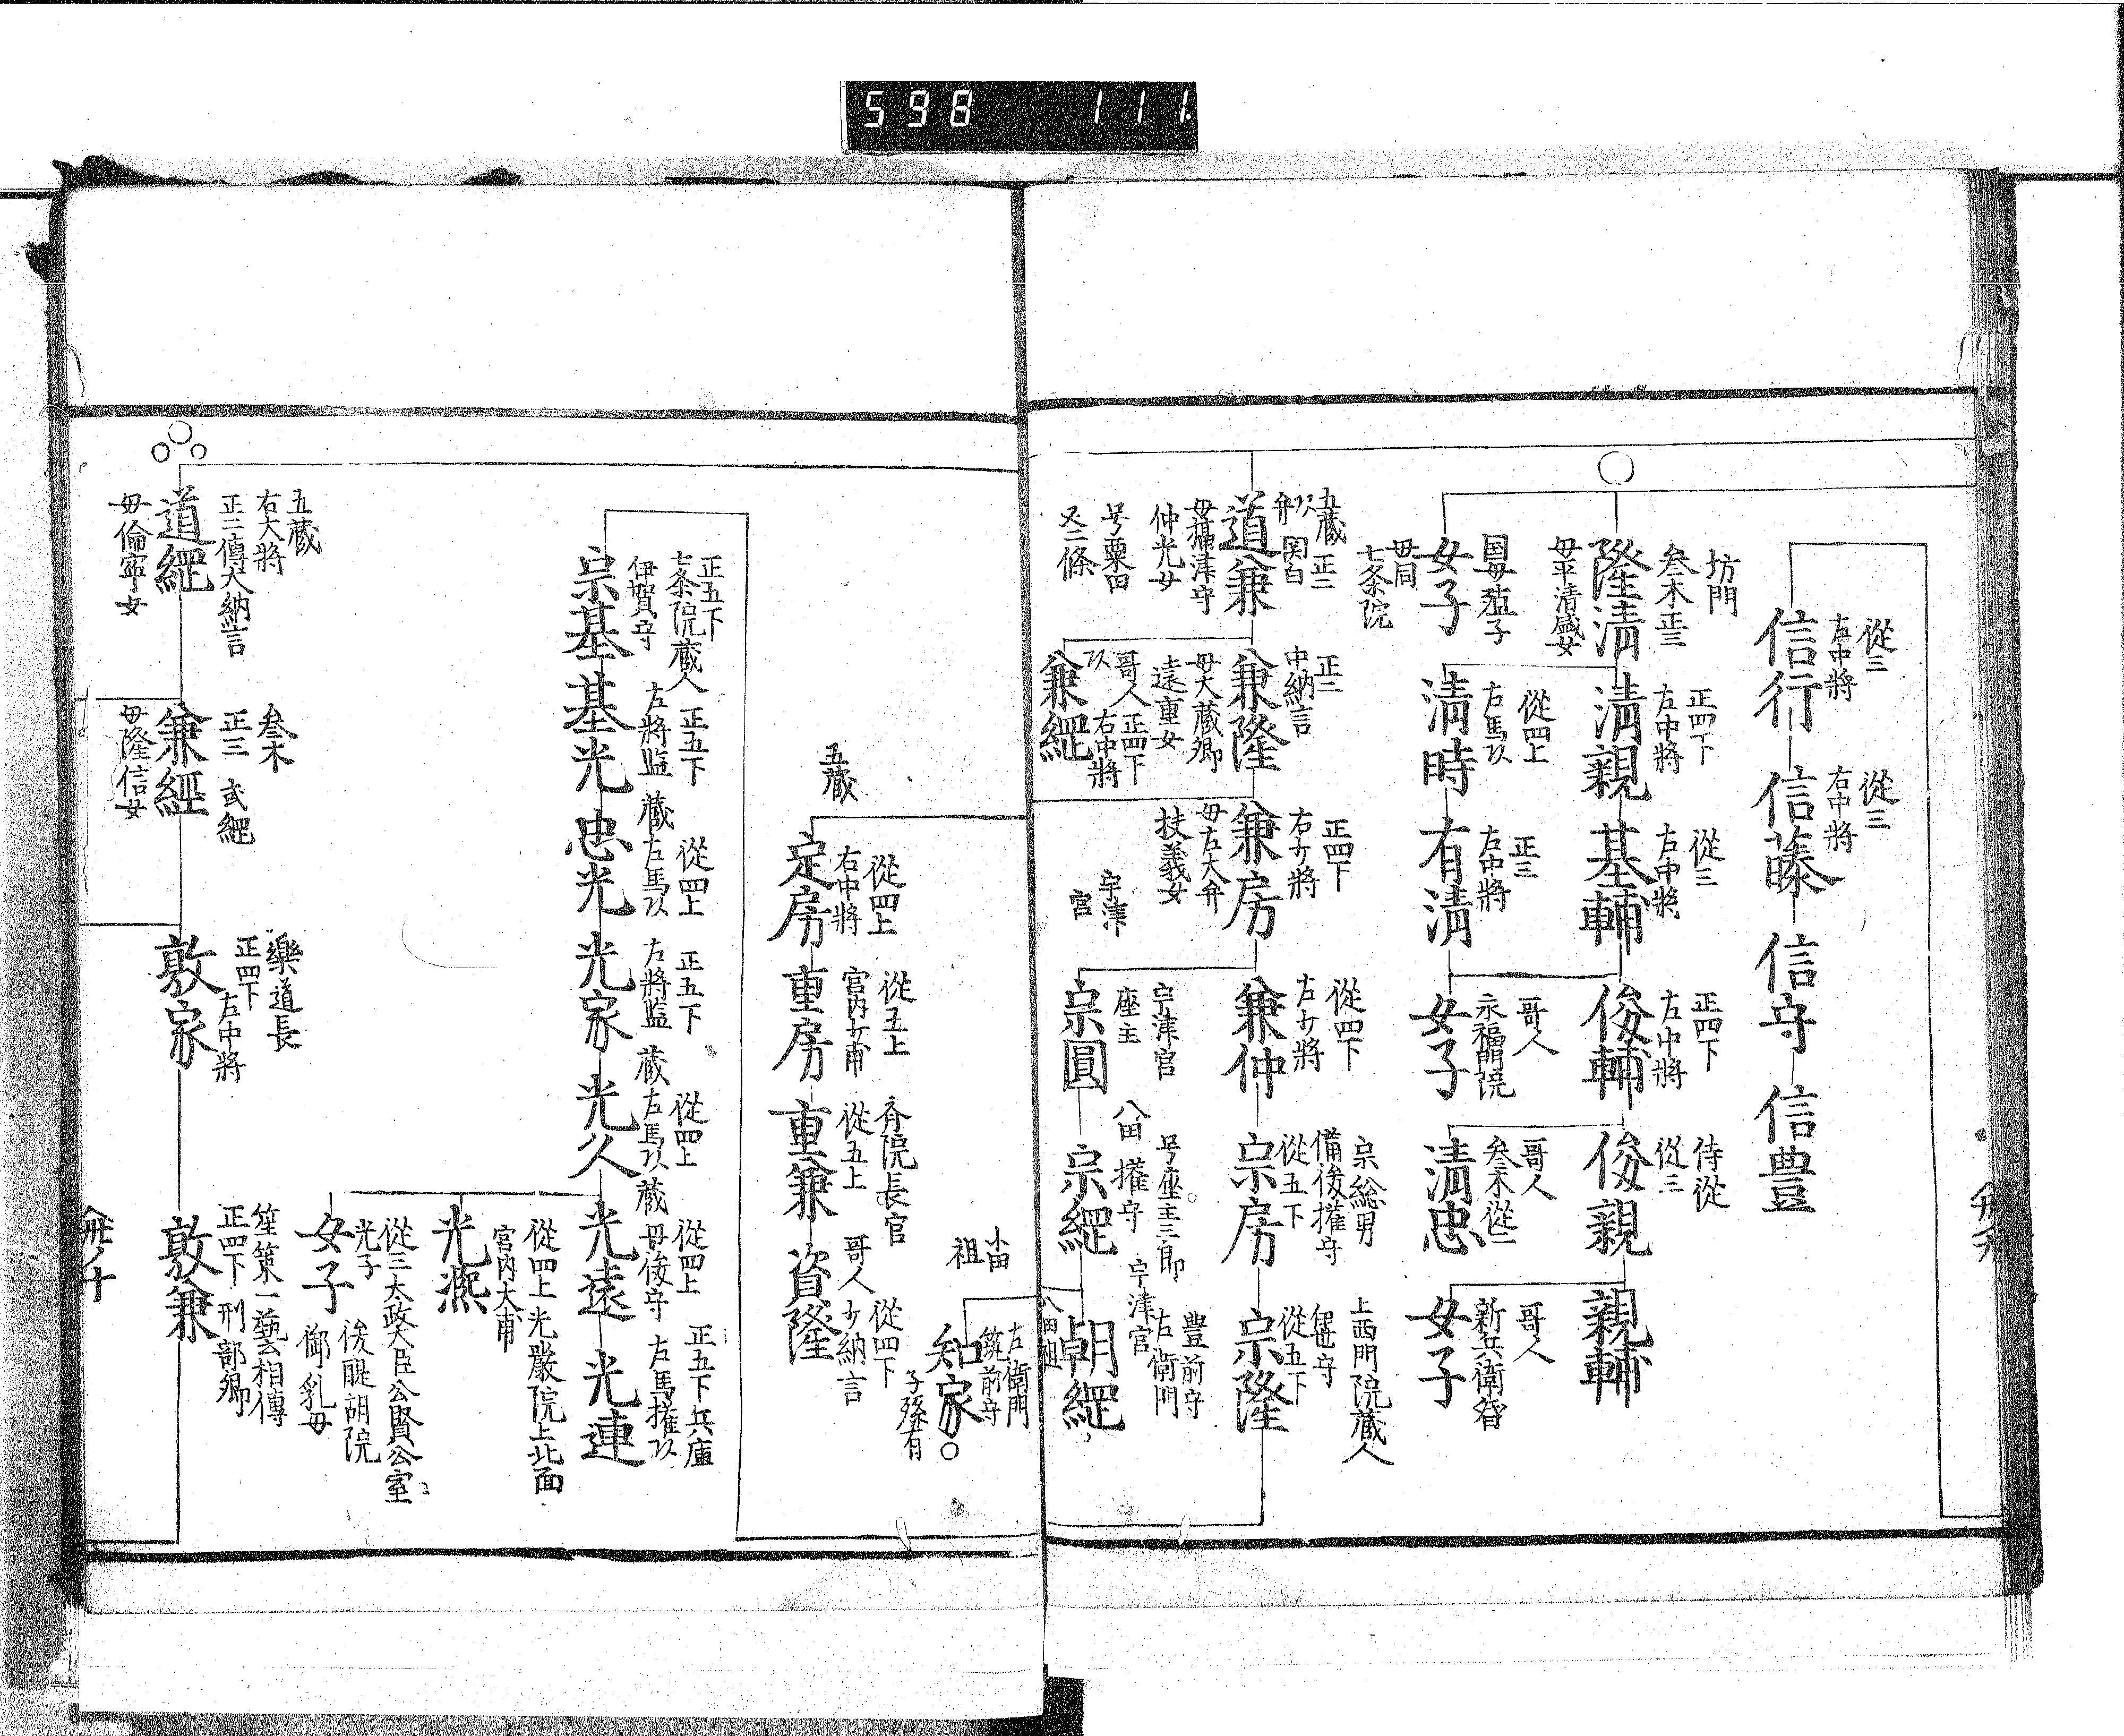 598 111
從三
右中將
信行
從三
右中將
信藤
信守
信豊
坊門
叅木正三
隆清
母平清盛女
正四下
左中將
清親
從三
左中將
基輔
正四下
左中將
俊輔
侍從
從三
俊親
親輔
国母殖子
女子
母同
七条院
從四上
右馬以
清時
正三
左中將
有清
哥人
永福門院
女子
哥人
叅木從二
清忠
哥人
新兵衛督
女子
五蔵 正二
関白
道兼
母攝津守
仲光女
号粟田
又二條
正二
中納言
兼隆
母大蔵卿
遠重女
哥人 正四下
右中將
兼綱
正四下
右少將
兼房
母左大弁
扶義女
從四下
左少將
兼仲
宗総男
備後權守
從五下
宗房
上西門院蔵人
伊与守
從五下
宗隆
宇津
官
宇津官
座主
宗圓
号座主三郎
八田 權守
宗綱
宇津官
豊前守
左衛門
朝綱
八田祖
左衛門
筑前守
知家
子孫有
小田
祖
五蔵
從四上
右中將
定房
從五上
宮内少甫
重房
斎院長官
從五上
重兼
哥人 從四下
少納言
資隆
正五下
七条院蔵人
伊賀守
宗基
正五下
左將監
基光
從四上
蔵左馬以
忠光
正五下
左將監
光家
從四上
蔵左馬以
光久
從四上
蔵 母俊守
光遠
正五下兵庫
左馬權以
光連
從四上光嚴院上北面
宮内大甫
光燕
從三太政大臣公賢公室
光子 後醍胡院
御乳母
女子
五蔵
右大將
正二傳大納言
道綱
母倫寧女
叅木
正三 武綱
兼經
母隆信女
樂道長
正四下
左中將
敦家
篳篥一藝相傳
正四下 刑部卿
敦兼